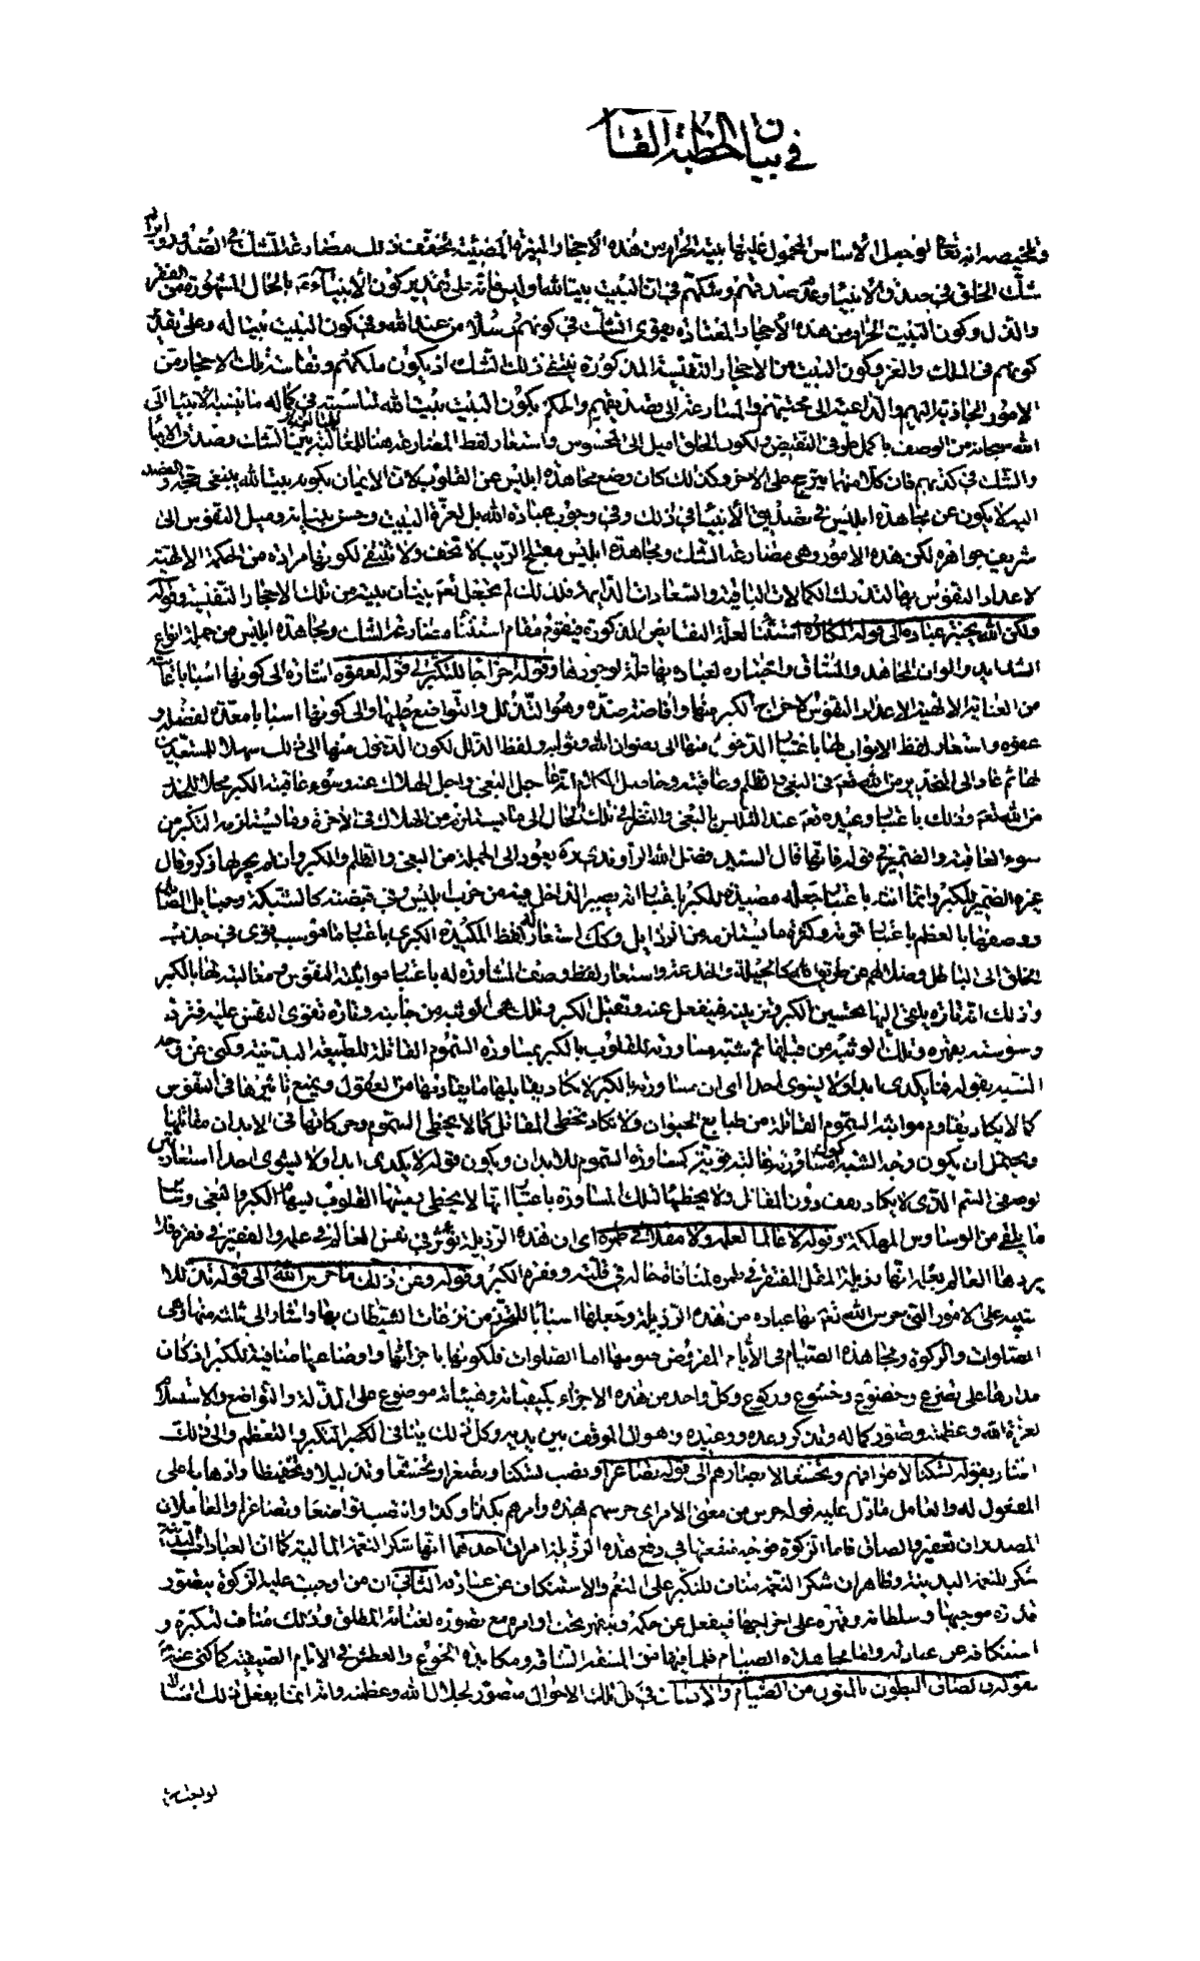 في بيان الخطبة القاصعة
وتلخيصه انه تعالى لو جعل الأساس المحمول عليها بيته الحرام بين هذه الأحجار المنيرة المضيئة لخفف ذلك مضارعة الشك في الصدور
شك الخلق في صدق الأنبياء وعدم صدقهم وشكهم في ان البيت بيت الله او ليس فانه على تقدير كون الأنبياء بالحال المشهورة من الفقر
والذل وكون البيت الحرام من هذه الأحجار المعتادة يقوى الشك في كونهم رسلا من عند الله وفي كون البيت بيتا له وعلى تقدير
كونهم في الملك والعز وكون البيت من الاحجار النفيسة المذكورة ينتفي ذلك الشك اذ يكون ملكهم ونفاسة تلك الاحجار من
الامور الجاذبة اليهم والداعية الى محبتهم والمسارعة الى تصديقهم والحكم بكون البيت بيت الله لمناسبته في كماله ما ينسبه الأنبياء الى
الله سبحانه من الوصف باكمل طرفي النقيض ولكون الخلق اميل الى المحسوس واستعار لفظ المضارعة هنا للمغالبة بين الشك وصدق الانبياء
والشك في كذبهم فان كلا منهما يترجح على الاخر وكذلك كان وضع مجاهدة ابليس عن القلوب لان الايمان بكونه بيتا لله ينبغي حجه والقصد
اليه لا يكون عن مجاهدة ابليس في تصديق الأنبياء في ذلك وفي وجوب عبادة الله بل لعزة البيت وحسن بنيانه وميل النفوس الى
شريف جواهره لكن هذه الامور وهي مضارعة الشك ومجاهدة ابليس معتلج الريب لا تخف ولا تنتفي لكونها مرادة من الحكمة الالهية
لاعداد النفوس بها لتدرك الكمالات الباقية والسعادات الدائمة فلذلك لم يجعل تعالى بنيان بيته من تلك الاحجار النفيسة وقوله
ولكن الله يختبر عباده الى قوله المكاره استثناء لعلة النقائض المذكورة فيقوم مقام استثناء مضارعة الشك ومجاهدة ابليس من جملة انواع
الشدايد والوان المجاهد والمشاق واختباره لعباده بها علة لوجودها وقوله اخراجا للتكبر الى قوله لعفوه اشارة الى كونها اسبابا غائية
من العناية الالهية لاعداد النفوس لاخراج الكبر منها وافاضة ضده وهو التذلل والتواضع عليها والى كونها اسبابا معدة لفضله و
عفوه واستعار لفظ الابواب لها باعتبار الدخول منها الى رضوان الله وثوابه ولفظ الذلل لكون الدخول منها الى ذلك سهلا للمستعدين
لها ثم عاد الى التحذير من الله تعالى في البغي والظلم وعاقبته وحاصل الكلام انه عاجل البغي واجل الهلاك عنه وسوء عاقبة الكبر محلا للحذر
من الله تعالى وذلك باعتبار وعيده تعالى عند التلبس بالبغي والنظر في تلك الحال الى ما يستلزمه من الهلاك في الآخرة وما يستلزمه التكبر من
سوء العاقبة والضمير في قوله فانها قال السيد فضل الله الراوندي ره يعود الى الجملة من البغي والظلم والكبر وان لم يجر لها ذكر وقال
غيره الضمير للكبر وانما انثه باعتبار جعله مصيدة للكبر باعتبار انه يصير الداخل فيه من حزب ابليس وفي قبضته كالشبكة وحبايل الصايد
ووصفها بالعظم باعتبار قوته وكثرة ما يستلزمه من الرذايل وكذلك استعار له لفظ المكيدة الكبرى باعتبار ما هو سبب قوي في جذب
الخلق الى الباطل وضلالهم عن طريق الله كالحيلة والخدعة واستعار لفظ وصف المساورة له باعتبار مواثبته النفوس ومغالبته لها بالكبر
وذلك انه تارة يلقي اليها تحسين الكبر وتزيينه فينفعل عنه وتقبل الكبر وتلك هي الوثبة من جانبه وتارة تقوى النفس عليه فترد
وسوسته بقهره وتلك الوثبة من قبلها ثم شبه مساورته للقلوب بالكبر بمساورة السموم القاتلة للطبيعة البدنية وكنى عن وجه
الشبه بقوله فما يكدى ابدا ولا يشوى احدا اي ان مساورته بالكبر لا يكاد يقابلها ما يقاومها من العقول ويمنع تاثيرها في النفوس
كما لا يكاد يقاوم مواثبة السموم القاتلة من طبايع الحيوان ولا تكاد تخطى المقاتل كما لا يخطي السموم وحركاتها في الابدان مقاتلها
ويحتمل ان يكون وجه الشبه كون مساورته غالبة قوية كمساورة السموم للابدان ويكون قوله لا يكدى ابدا ولا يشوى احدا استعارة
لوصفي السم الذي لا يكاد يقف دون المقاتل ولا يخطيها لتلك المساورة باعتبار انها لا يخطي رميتها القلوب بسهام الكبر والبغي وساير
ما يلقى من الوساوس المهلكة وقوله لا عالما لعلمه ولا مقلا في طمره اي ان هذه الرذيلة تؤثر في نفس العالم في علمه والفقير في فقره فلا
يردها العالم بعلمه انها رذيلة والمقل المفتقر في طمره لمنافاة حاله في قلته وفقره الكبر وقوله وعن ذلك ما حرس الله الى قوله تذللا
تنبيه على الامور التي حرس الله تعالى بها عباده من هذه الرذيلة وجعلها اسبابا للتحرز من نزغات الشيطان بها واشار الى ثلاثة منها وهي
الصلوات والزكوة ومجاهدة الصيام في الأيام المفروض صومها اما الصلوات فلكونها باجزائها واوضاعها منافية للكبر اذ كان
مدارها على تضرع وخضوع وخشوع وركوع وكل واحد من هذه الاجزاء بكيفياته وهيئاته موضوع على المذلة والتواضع والاستسلام
لعزة الله وعظمته وتصور كماله وتذكر وعده ووعيده وهول الموقف بين يديه وكل ذلك ينافي الكبر التكبر والتعظم والى ذلك
اشار بقوله تسكينا لاطرافهم وتخشيعا لابصارهم الى قوله تصاغرا ونصب تسكينا وتخشيعا وتذليلا وتخفيضا واذهابا على
المفعول له والعامل ما دل عليه قوله حرس من معنى الامر اي حرسهم بهذه وامرهم بكذا وكذا وانتصب تواضعا وتصاغرا والعاملان
المصدران تعفير والصاق فاما الزكوة فوجه منفعتها في دفع هذه الرذيلة امران احدهما انها شكر النعمة المالية كما ان العبادات البدنية
شكر للنعمة البدنية وظاهر ان شكر النعمة مناف للتكبر على المنعم والاستنكاف عن عبادته الثاني ان من اوجبت عليه الزكوة يتصور
قدرة موجبها وسلطانه وقهره على اخراجها فينفعل عن حكمه وينقهر تحت اوامره مع تصوره لغنائه المطلق وذلك مناف لتكبره و
استنكافه عن عبادته واما مجاهدة الصيام فلما فيها من المشقة الشاقة ومكابدة الجوع والعطش في الايام الصيفية كما كنى عنه
بقوله والصاق البطون بالمتون من الصيام والانسان في كل تلك الاحوال متصور لجلال الله وعظمته وانه انما يفعل ذلك امتثالا
لوجب